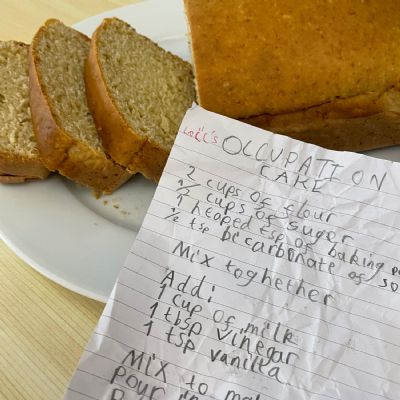 OCCUPATION
CAKE
2 cups of flour
1/2 cups of suger
1 heaped tsp of baking po
1/2 tsp bicarbonate of so
Mix toghether
Add:
1 cup of milk
1 tbsp vinegar
1 tsp vanilla
MIX to
pour